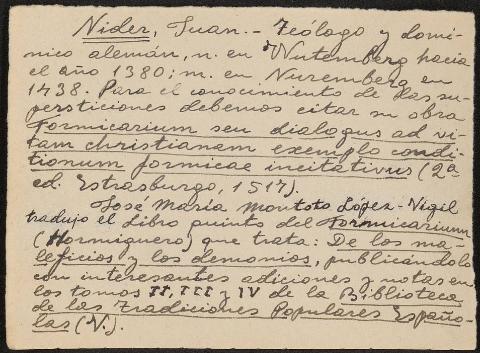 Nider, Juan.- Teólogo y domi-
nico alemán, n. en Wutemberg hacia
el año 1380; m. en Nuremberg en
1438. Para el conocimiento de las su-
persticiones debemos citar su obra
Formicarium seu dialogus ad vi-
tam christianam exemplo condi-
tionum formicae incitativus (2ª
ed. Estrasburgo, 1517).
José María Montoto López-Vigil
tradujo el Libro quinto del Formicarium
(Hormiguero) que trata: De los ma-
leficios y los demonios, publicándolo
con interesantes adiciones y notas en
los tomos II, III y IV de la Biblioteca
de las Tradiciones Populares Españo-
las (N.).